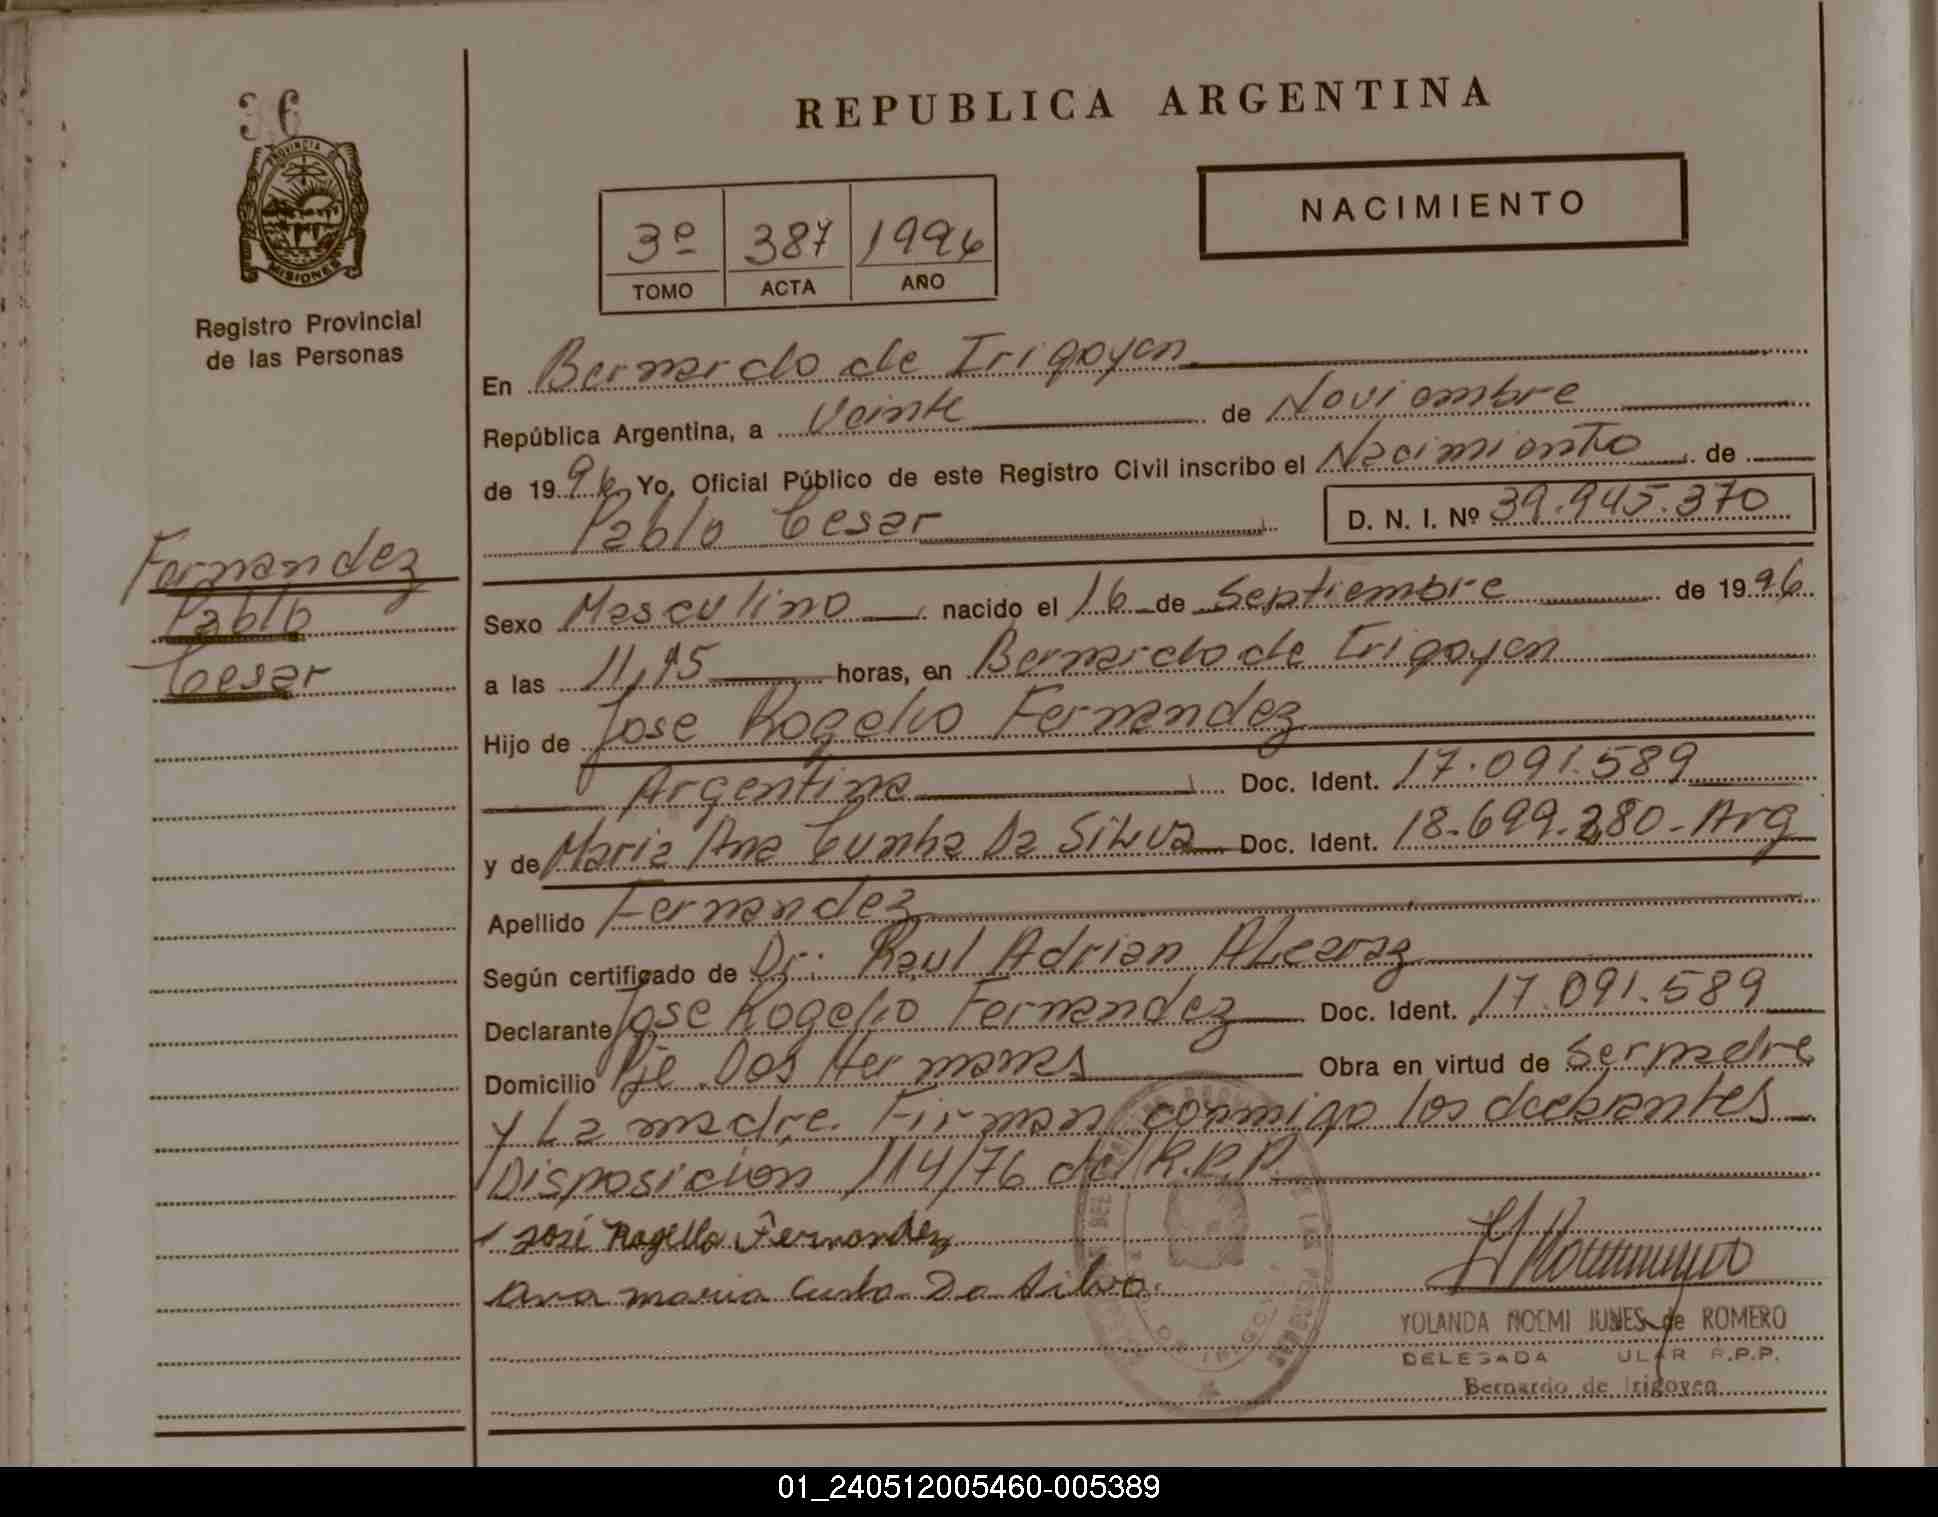 36
REPUBLICA ARGENTINA
PROVINCIA DE
MISIONES
Registro Provincial
de las Personas
NACIMIENTO
3º 387 1996
TOMO ACTA AÑO
En Bernardo de Irigoyen
República Argentina, a Veinte de Noviembre
de 1996 Yo, Oficial Público de este Registro Civil inscribo el Nacimiento de
Pablo Cesar D. N. I. Nº 39.945.370
Fernandez
Pablo
Cesar
Sexo Masculino nacido el 16 de Septiembre de 1996
a las 11,15 horas, en Bernardo de Irigoyen
Hijo de Jose Rogelio Fernandez
Argentina Doc. Ident. 17.091.589
y de Maria Ana Cunha Da Silva Doc. Ident. 18.699.280-Arg
Apellido Fernandez
Según certificado de Dr. Raul Adrian Alcaraz
Declarante Jose Rogelio Fernandez Doc. Ident. 17.091.589
Domicilio Pje Dos Hermanas Obra en virtud de Ser padre
y La madre. Firman conmigo los declarantes
Disposicion 114/76 del R.P.P.
José Rogelio Fernandez
Ana maria Cunha Da Silva
YOLANDA NOEMI JUNES de ROMERO
DELEGADA ULAR R.P.P.
Bernardo de Irigoyen
01_240512005460-005389